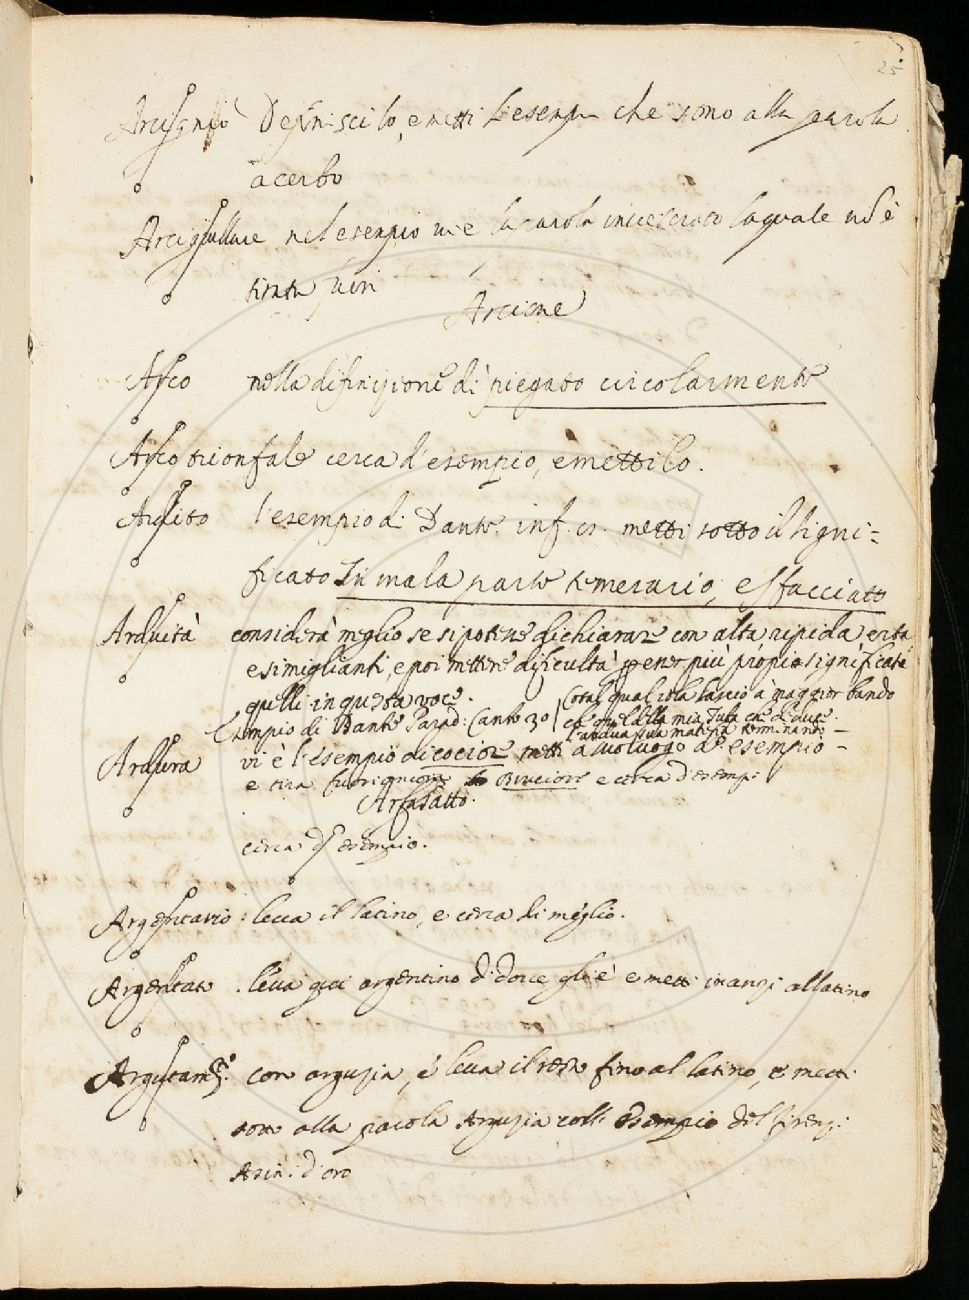 25
Arcigno Definiscilo, e metti l'esempi che sono alla parola
acerbo
nel esempio vi è la parola la quale
tirata fuori
Arcione
Arco nella difinizione di piegato circolarmente
Arco trionfale cerca d'esempio, e mettilo.
Ardito l'esempio di Dante inf. metti sotto il signi-
ficato In mala parte temerario, e sfacciato
Arduità considera meglio se si potesse dichiarare con alta ripida erta
e simiglianti, e poi mettere dificultà per più propio significate
quelli in questa voce.
Cotal qual io la lascio a maggior bando
Esempio di Dante Parad: Canto 30
che quel della mia tuba che deduce
l'ardua sua matera terminando
Arsura vi è l'esempio di cocior metti a suo luogo d'esempio
e tira fuori ancora bruciore e cerca d'esemp:
Arfasatto.
cerca d'esempio.
Argentario: leva il latino, e cerca di meglio.
Argentato. leva qui argentino di dove gli è e metti inanzi al latino
con arguzia, e leva il resto fino al latino, e metti
alla parola Arguzia coll esempio del firenz:
Asin: d'oro